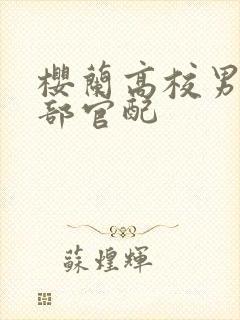 櫻蘭高校男
部官配
蘇煌輝